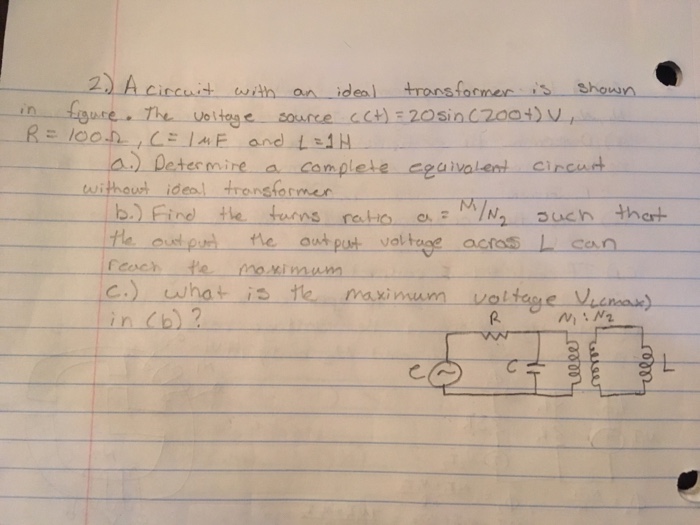 2.) A circuit with an ideal transformer is shown
in figure. The voltage source c(t) = 20sin(200t) V,
R = 100Ω, C = 1μF and L = 1H
a.) Determire a complete equivalent circuit
without ideal transformer
b.) Find the turns ratio a = N1/N2 such that
the output the output voltage across L can
reach the maximum
c.) what is the maximum voltage VL(max)
in (b)?
R N1 : N2
e C L